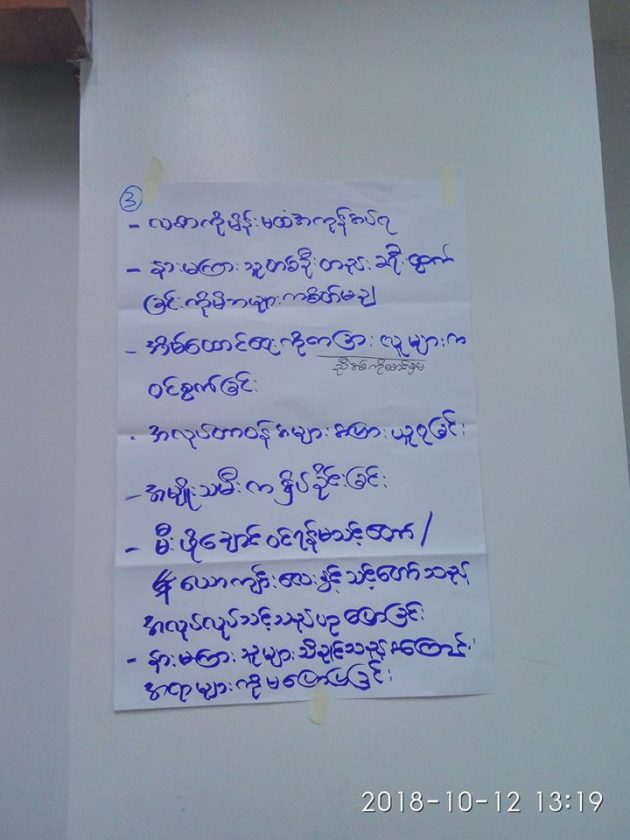 ③
- လစာကိုမိန်းမထံအကုန်အပ်ရ
- နားမကြားသူတစ်ဦးတည်း ခရီးထွက်
ခြင်းကိုမိဘများကစိတ်မချ
- အိမ်ထောင်ရေးကိုတခြားလူများက
ညီအစ်ကိုမောင်နှမ
ဝင်စွက်ခြင်း
- အလုပ်တာဝန်အများအပြားယူရခြင်း
- အမျိုးသမီးကနှိပ်ခိုင်းခြင်း
- မီးဖိုချောင်ဝင်ရန်မသင့်တော် /
ယောကျ်ားလေးနှင့်သင့်တော်သည့်
အလုပ်လုပ်သင့်သည်ဟုပြောခြင်း
- နားမကြားသူများသိချင်သည့်အကြောင်း
အရာများကိုမပြောပြခြင်း
2018-10-12 13:19